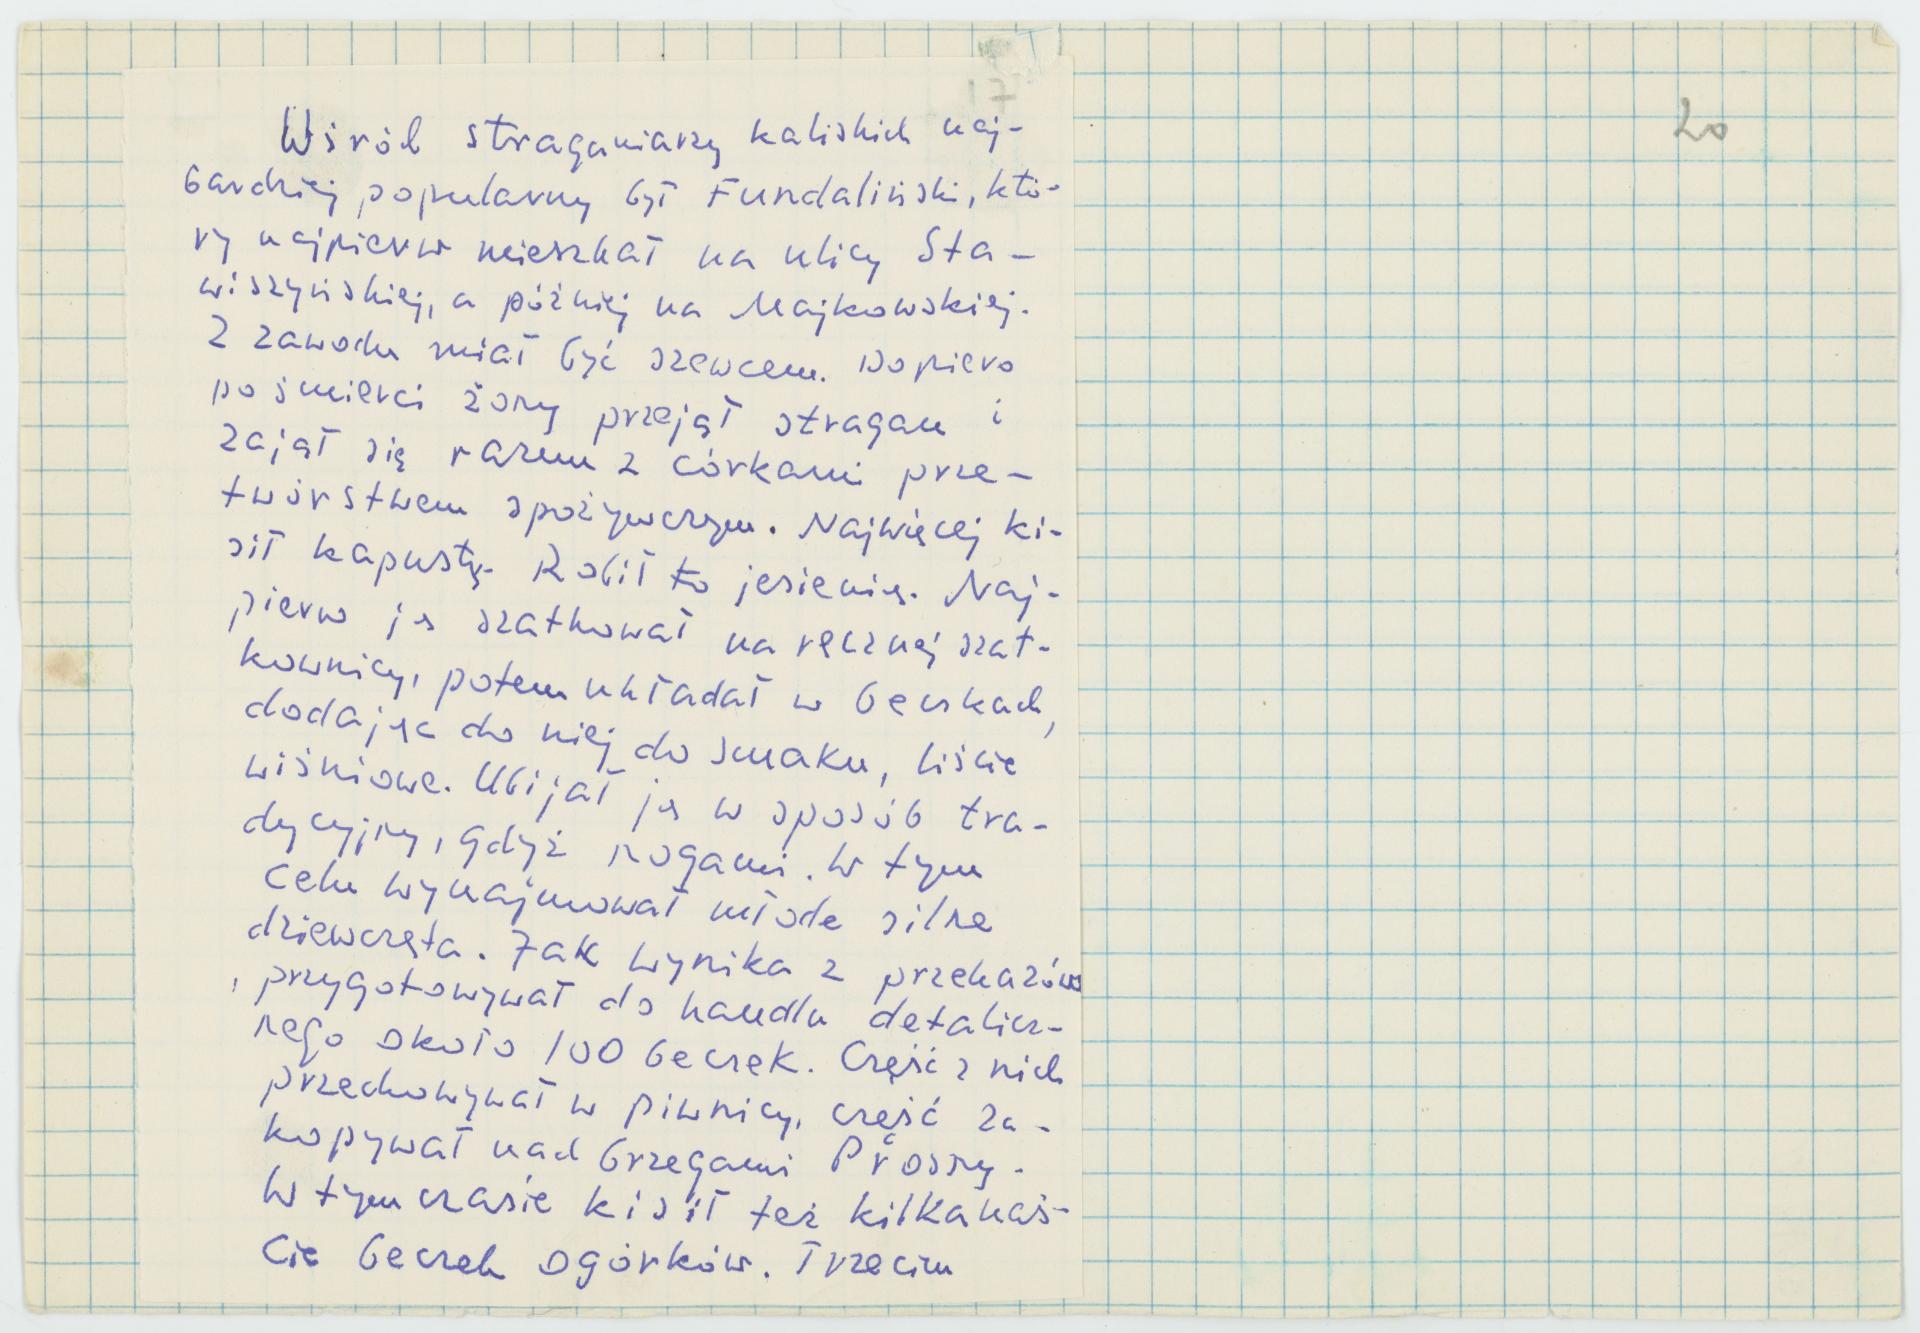 17
20
Wśród straganiarzy kaliskich naj-
bardziej popularny był Fundaliński, któ-
ry najpierw mieszkał na ulicy Sta-
wiszyńskiej, a później na Majkowskiej.
Z zawodu miał być szewcem. Dopiero
po śmierci żony przejął stragan i
zajął się razem z córkami prze-
twórstwem spożywczym. Najwięcej ki-
sił kapustę. Robił to jesienią. Naj-
pierw ją szatkował na ręcznej szat-
kownicy, potem układał w beczkach,
dodając do niej do smaku, liście
wiśniowe. Ubijał ją w sposób tra-
dycyjny, gdyż nogami. W tym
celu wynajmował młode silne
dziewczęta. Jak wynika z przekazów
, przygotowywał do handlu detalicz-
nego około 100 beczek. Część z nich
przechowywał w piwnicy, część za-
kopywał nad brzegami Prosny.
W tym czasie kisił też kilkanaś-
cie beczek ogórków. Trzecim